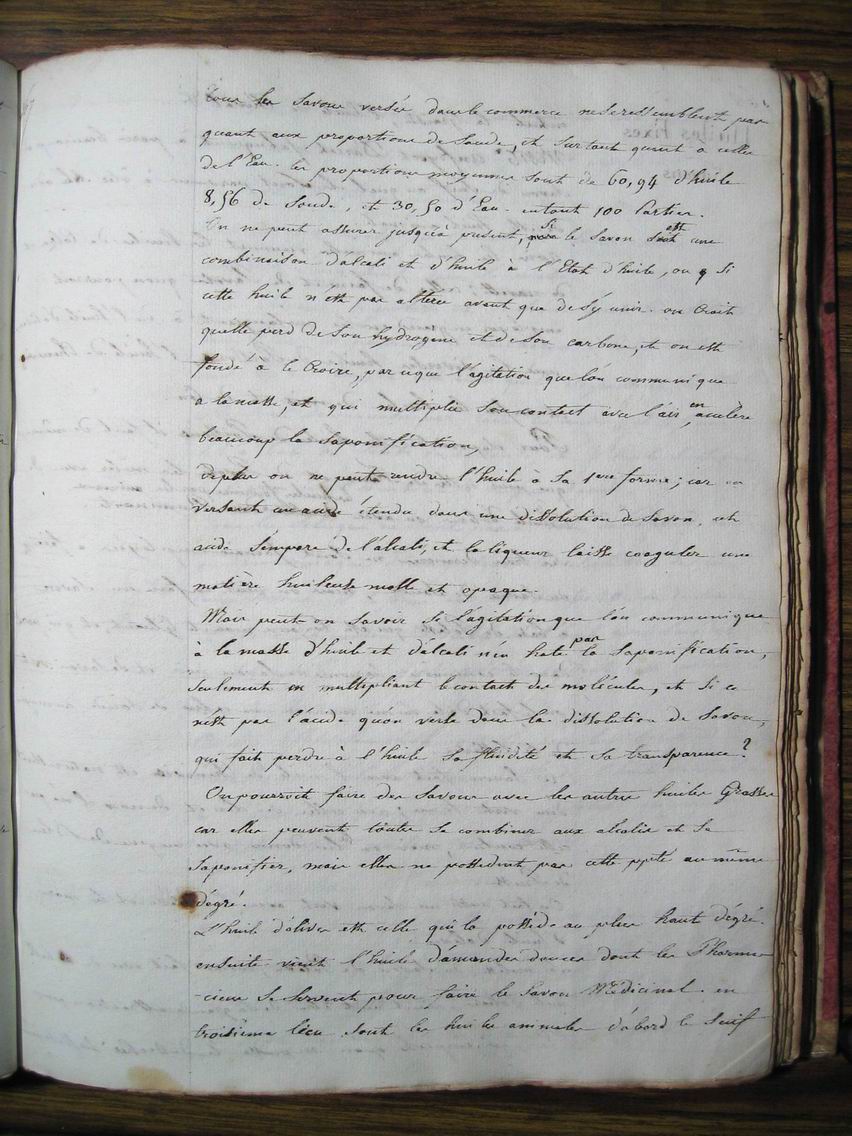 tous les savons versés dans le commerce ne se ressemblent pas
quant aux proportions de soude, et surtout quant a celle
de l'Eau. les proportions moyennes sont de 60,94 d'huile
8,56 de Soude, et 30,50 d'Eau. en tout 100 Parties.
On ne peut assurer jusqu'à présent, si le savon est une
combinaison d'alcali et d'huile à l'Etat d'huile, ou si
cette huile n'est pas altérée avant que de s'y unir. on croit
quelle perd de son hydrogene et de son carbone, et on est
fondé à le croire, par ceque l'agitation que l'on communique
a la masse, et qui multiplie son contact avec l'air, en accélère
beaucoup la saponification,
deplus on ne peut rendre l'huile à sa 1ere forme; car en
versant un acide étendu dans une dissolution de savon, cet
acide s'empare de l'alcali, et la liqueur laisse coaguler une
matière huileuse molle et opaque.
Mais peut on savoir si l'agitation que l'on communique
à la masse d'huile et d'alcali n'en hate par la saponification,
seulement en multipliant le contact des molécules, et si ce
n'est pas l'acide qu'on verse dans la dissolution de savon,
qui fait perdre à l'huile sa fluidité et sa transparence?
On pourroit faire des savons avec les autres huiles Grasses
car elles peuvent toutes se combiner aux alcalis et se
saponifier, mais elles ne possedent pas cette ppté au même
dégré.
L'huile d'olives est celle qui la possède au plus haut dégré.
ensuite vient l'huile d'amandes douces dont les Pharma-
-ciens se servent pour faire le savon Médicinal. en
troisième lieu sont les huiles animales d'abord le suif